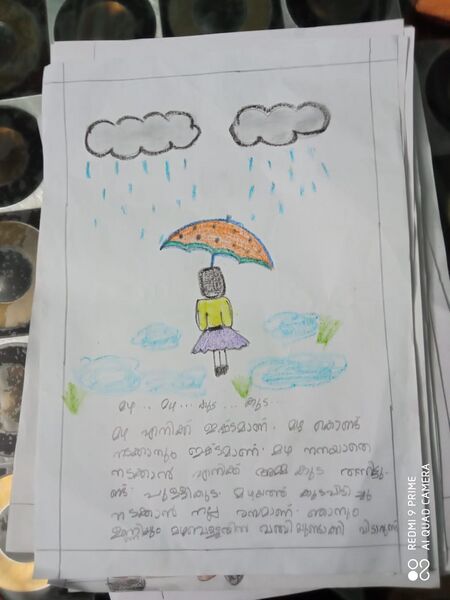 മഴ .. മഴ ... കുട ... കുട ..
മഴ എനിക്ക് ഇഷ്ടമാണ്. മഴ കൊണ്ട്
നടക്കാനും ഇഷ്ടമാണ്. മഴ നനയാതെ
നടക്കാൻ എനിക്ക് അമ്മ കുട തന്നിട്ടു-
ണ്ട്. പുള്ളികുട. മഴയത്ത് കുടപിടിച്ചു
നടക്കാൻ നല്ല രസമാണ്. ഞാനും
ഉണ്ണിയും മഴവെള്ളത്തിൽ വഞ്ചിയുണ്ടാക്കി
REDMI 9 PRIME
AI QUAD CAMERA